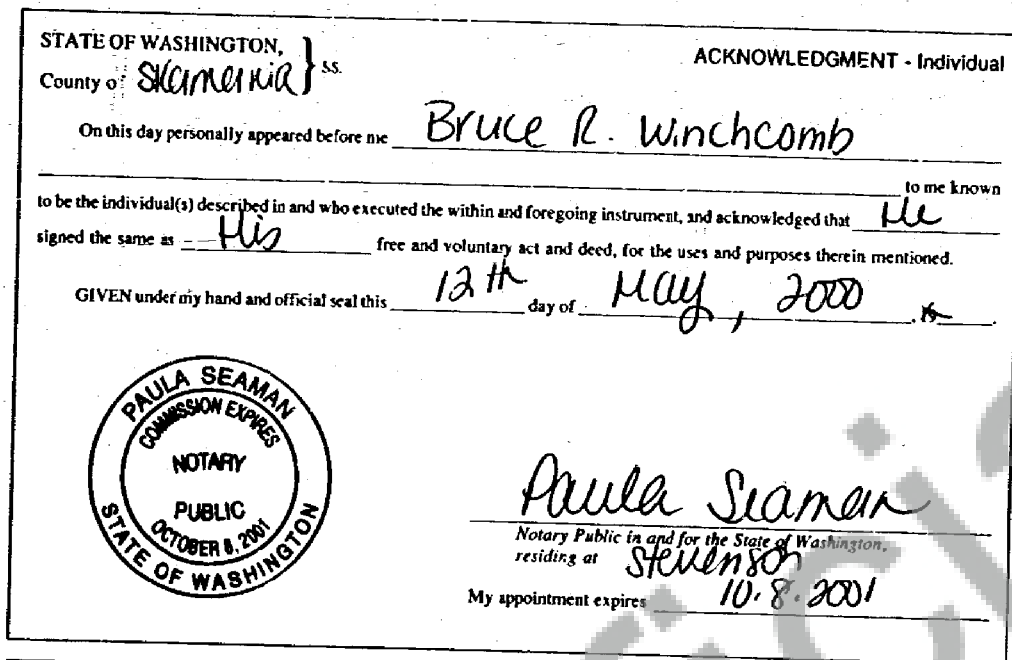 STATE OF WASHINGTON,
County of Skamania } ss.
ACKNOWLEDGMENT - Individual
On this day personally appeared before me Bruce R. Winchcomb
to me known
to be the individual(s) described in and who executed the within and foregoing instrument, and acknowledged that He
signed the same as His free and voluntary act and deed, for the uses and purposes therein mentioned.
GIVEN under my hand and official seal this 12th day of May, 2000, 19.
PAULA SEAMAN
COMMISSION EXPIRES
NOTARY
PUBLIC
OCTOBER 8, 2001
STATE OF WASHINGTON
Paula Seaman
Notary Public in and for the State of Washington,
residing at Stevenson
My appointment expires 10.8.2001